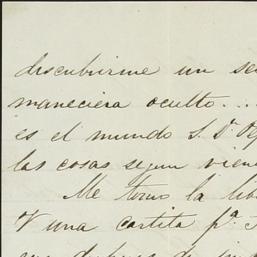 descubrirme un se
maneciera oculto...
es el mundo S. Dn
las cosas segun vien
Me tomo la lib
V una cartita pa.